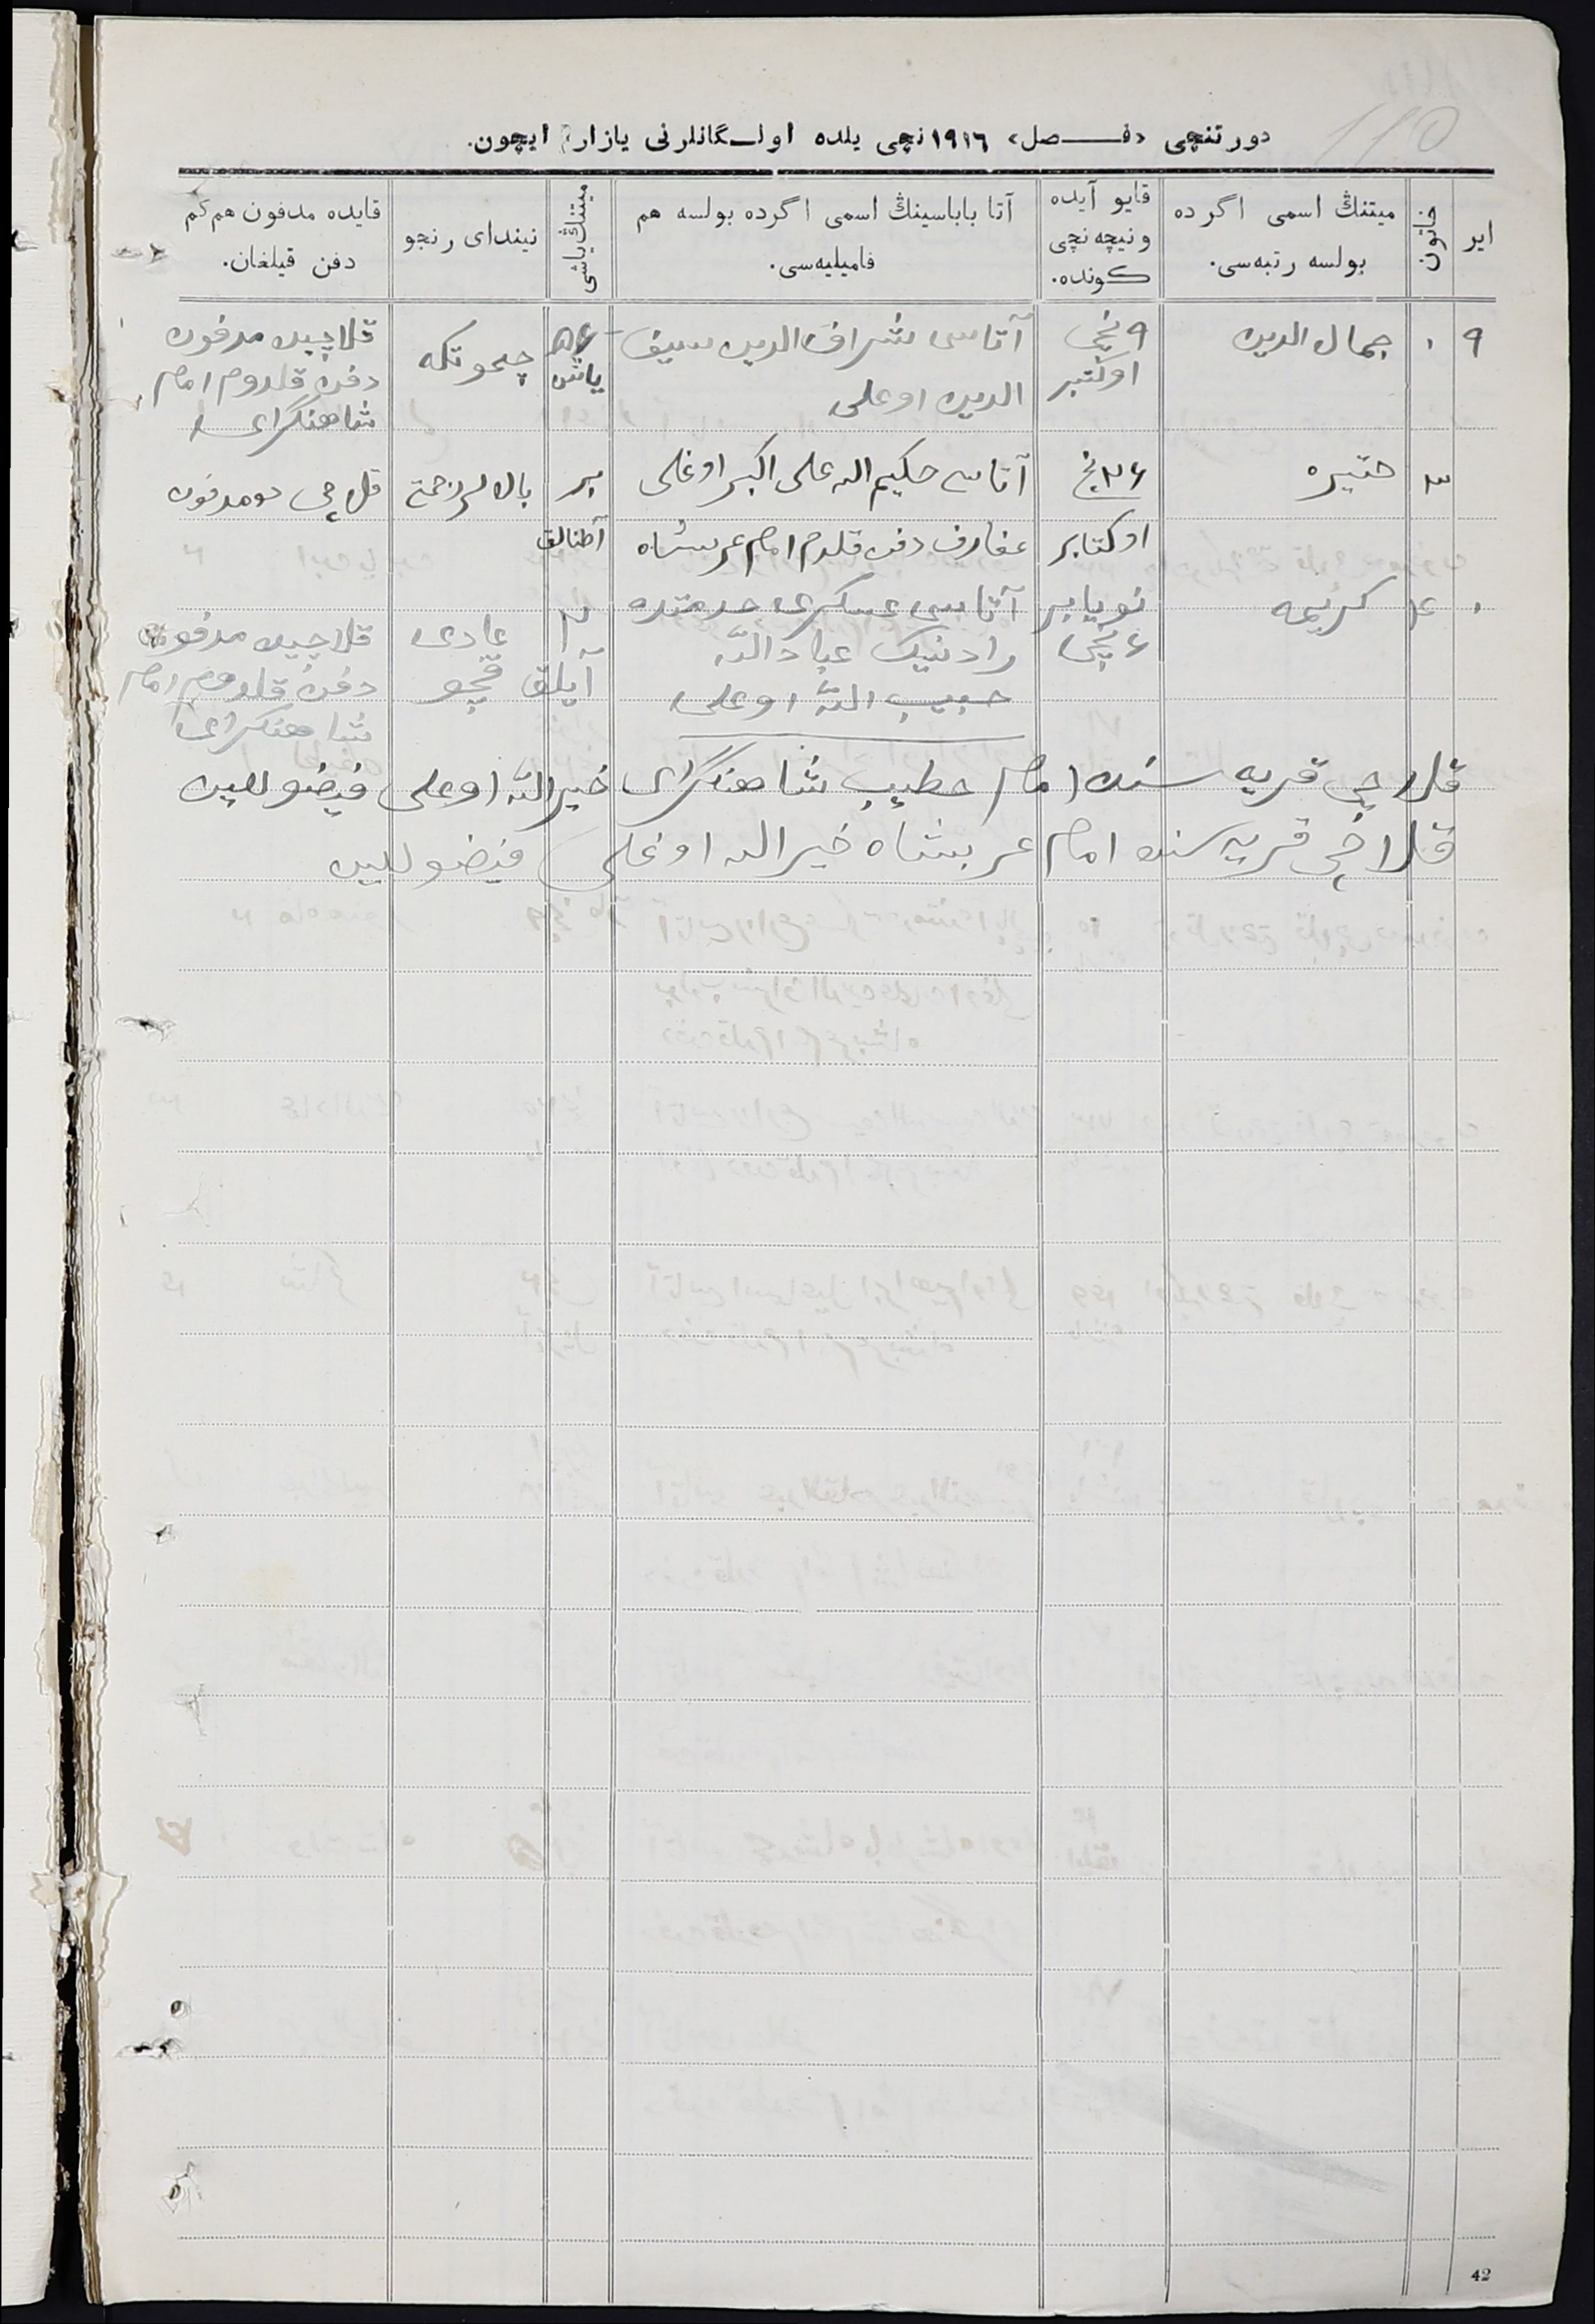 115
دورتنچی «فـصل» ١٩١٦نچی یلده اولـگانلرنی یازار ایچون.
ایر
خاتون
میتنڭ اسمی اگرده
بولسه رتبه‌سی.
قایو آیده
و نیچه نچی
كونده.
آتا باباسینڭ اسمی اگرده بولسه هم
فامیلیه‌سی.
میتنڭ یاشی
نیندای رنجو
قایده مدفون هم كم
دفن قیلغان.
۹
جمال الدین
۹ نچی
اوكتبر
آتاسی شراف الدین سیف
الدین اوغلی
۵۶
یاش
چحوتكه
قلاچیده مدفون
دفن قلدوم امام
شاهنگرای
۳
حتیره
۲۶نچ
اوكتابر
آتاسی حكیم الله علی اكبر اوغلی
عفارف دفن قلدم امام عربشاه
بر
آطنالق
بالالر زحمتی
قلاچی ده مدفون
۴
كریمه
نویابر
۶ نچی
آتاسی عسكری خدمتده
رادنیك عباد الله
حبیب الله اوغلی
۲
آیلق
عادی
قچو
قلاچیده مدفون
دفن قلدوم امام
شاهنگرای
قلاچی قریه سنده امام خطیب شاهنگرای خیرالله اوغلی فیضوللین
قلاچی قریه سنده امام عربشاه خیرالله اوغلی فیضوللین
42